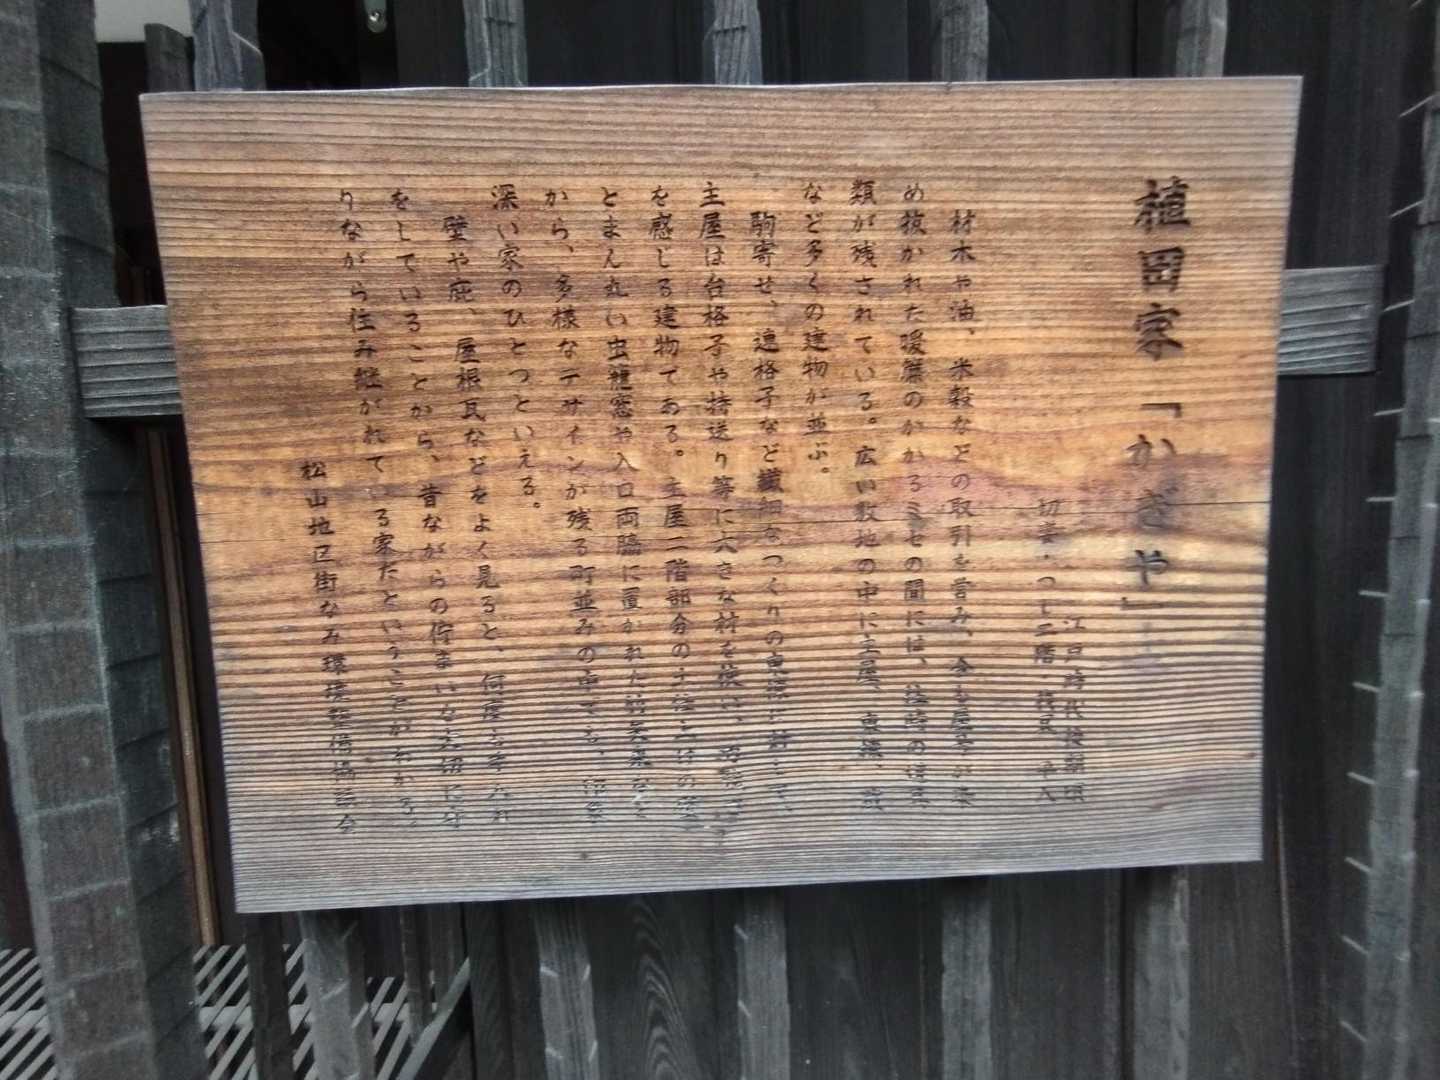 植田家「かぎや」
江戸時代後期頃
切妻・つし二階・桟瓦 平入
材木や油、米穀などの取引を営み、今も屋号が染
め抜かれた暖簾のかかるミセの間には、当時の道具
類が残されている。広い敷地の中に主屋、東棟、蔵
など多くの建物が並ぶ。
駒寄せ、連格子など繊細なつくりの東棟に対して、
主屋は台格子や持送り等に大きな材を使い、
を感じる建物である。主屋二階部分の土塗り
とまん丸い虫籠窓や入口両脇に置かれた
から、多様なデザインが残る町並みの中でも、
深い家のひとつといえる。
壁や庇、屋根瓦などをよく見ると、何度も手入れ
をしていることから、昔ながらの佇まいを大切に守
りながら住み継がれてる家だということがわかる。
松山地区街なみ環境整備協議会